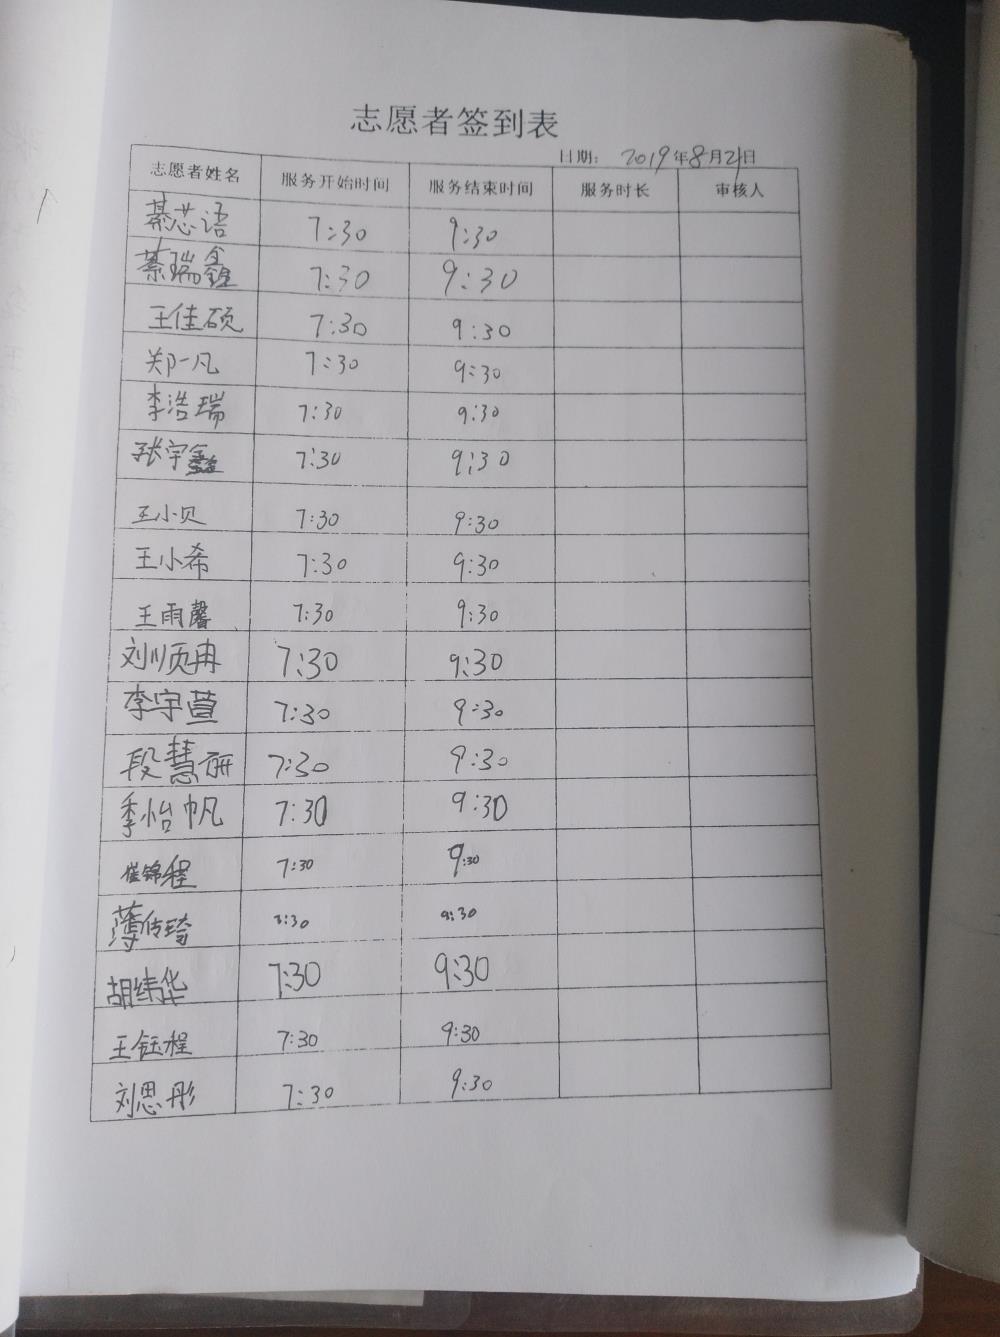 志愿者签到表
日期: 2019年8月21日
志愿者姓名 服务开始时间 服务结束时间 服务时长 审核人
綦芯语 7:30 9:30
綦瑞鑫 7:30 9:30
王佳硕 7:30 9:30
郑一凡 7:30 9:30
李浩瑞 7:30 9:30
张宇鑫 7:30 9:30
王小贝 7:30 9:30
王小希 7:30 9:30
王雨馨 7:30 9:30
刘顺冉 7:30 9:30
李宇萱 7:30 9:30
段慧妍 7:30 9:30
季怡帆 7:30 9:30
崔锦程 7:30 9:30
薄传琦 7:30 9:30
胡纬华 7:30 9:30
王钰程 7:30 9:30
刘思彤 7:30 9:30